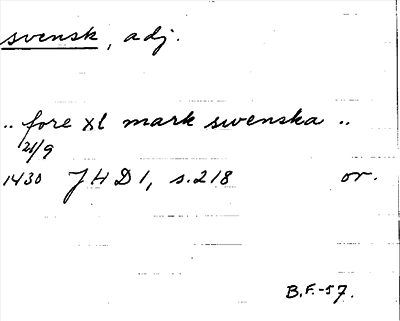 svensk, adj.
.. fore xl mark swenska ..
21/9
1430 JHD 1, s. 218 or.
B.F.-57.